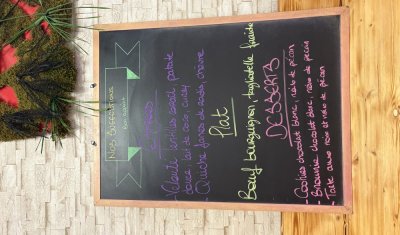 Nos suggestions
ENTRÉES
- Velouté lentille corail, patate
douce lait de coco, curry
- Quiche fanes de radis, chèvre
Plat
Boeuf bourguignon, tagliatelle fraîche
DESSERTS
- Cookies chocolat blanc, noix de pécan
- Brownie chocolat blanc, noix de pécan
- Tarte aux noix et noix de pécan